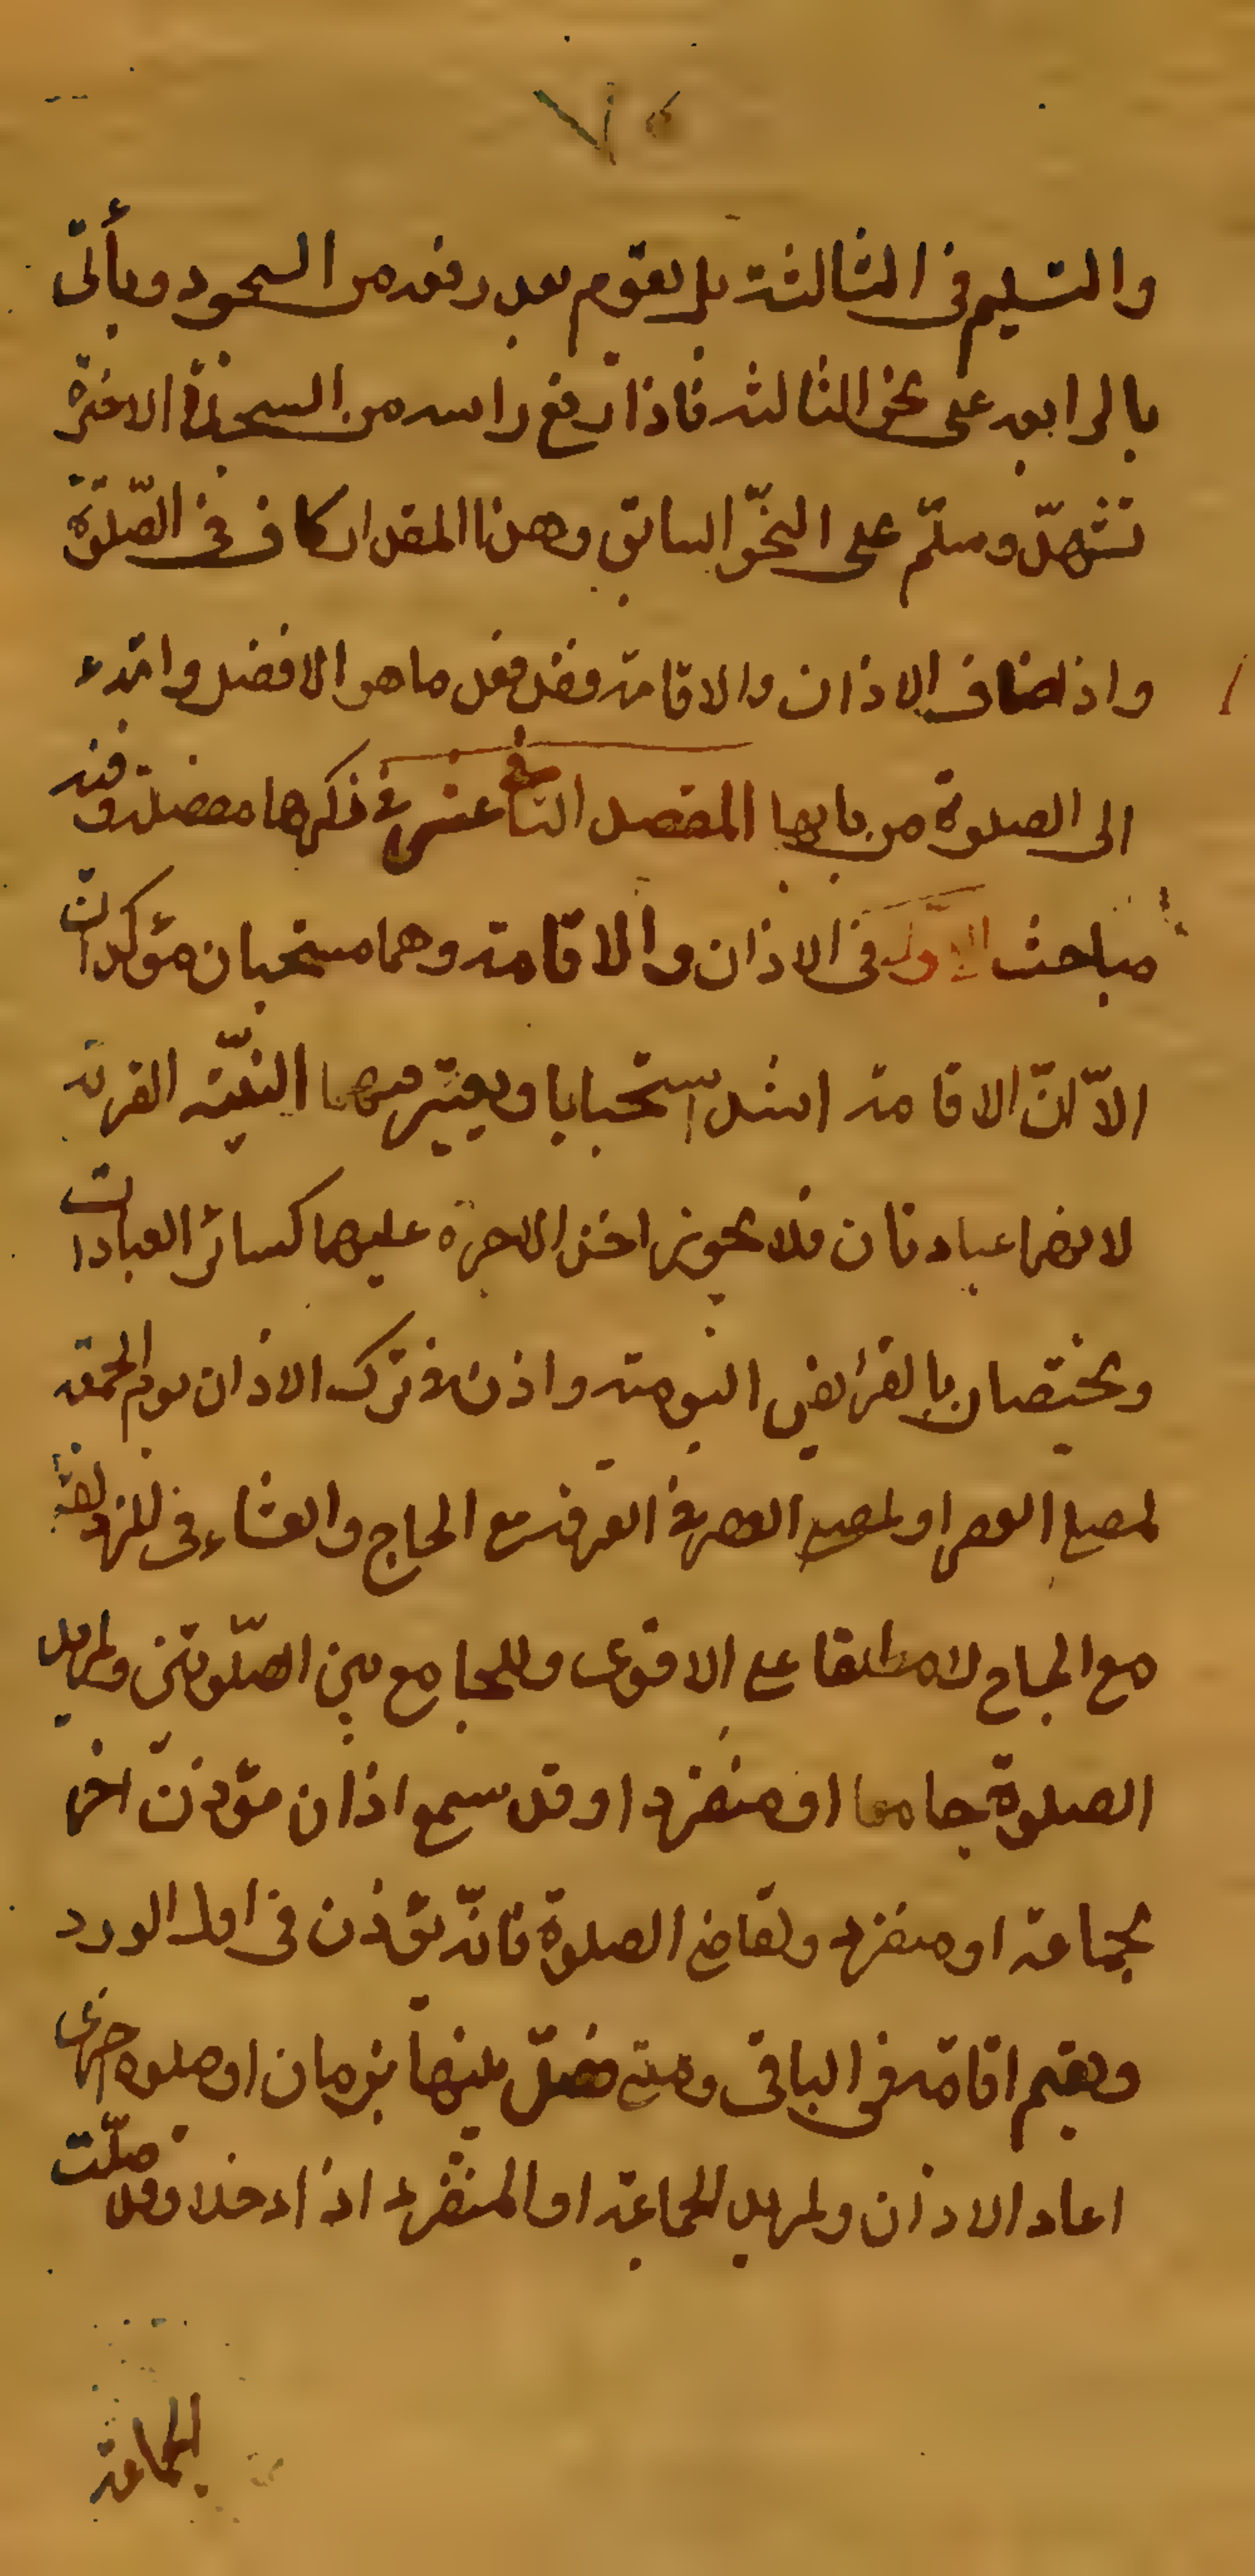 والتسليم فى الثالثة بل يقوم بعد رفعه من السجود ويأتى
بالرابعه على نحو الثالثه فاذا رفع راسه من السجدة الاخيرة
تشهّد وسلّم على النحّو السابق وهذا المقدار كاف فى الصّلوة
واذا ضاف الاذان والاقامة فقد فعل ما هو الافضل واتىء
الى الصلوة من بابها المقصد التاسع عشر فى ذكرها مفصلة وفيه
مباحث الاوّل فى الاذان والاقامة وهما مستحبان مؤكدان
الاّ انّ الاقامة اشد استحبابا ويعتبر فيهما النيّة القربة
لانهما عبادتان فلا يجوز اخذ الاجرة عليهما كسائر العبادات
ويختصان بالفرائض اليومية واذن فى ترك الاذان يوم الجمعه
لمصلى العصر او لمصلى العصر فى العرفة مع الحاج والعشاء فى المزدلفة
مع الحاج لا مطلقا على الاقوى وللجامع بين الصّلوتين ولمريد
الصلوة جامعا او منفرد او قد سمع اذان مؤذنّ اخر
بجماعة او منفرد ولقاضى الصلوة فانّه يؤذن فى اول الورد
ويقيم اقامة فى الباقى ومتى فصّل بينها بزمان او صلوة اخرى
اعاد الاذان ولمريد الجماعة او المنفرد اذا دخلا وقد صلّت
الجماعة